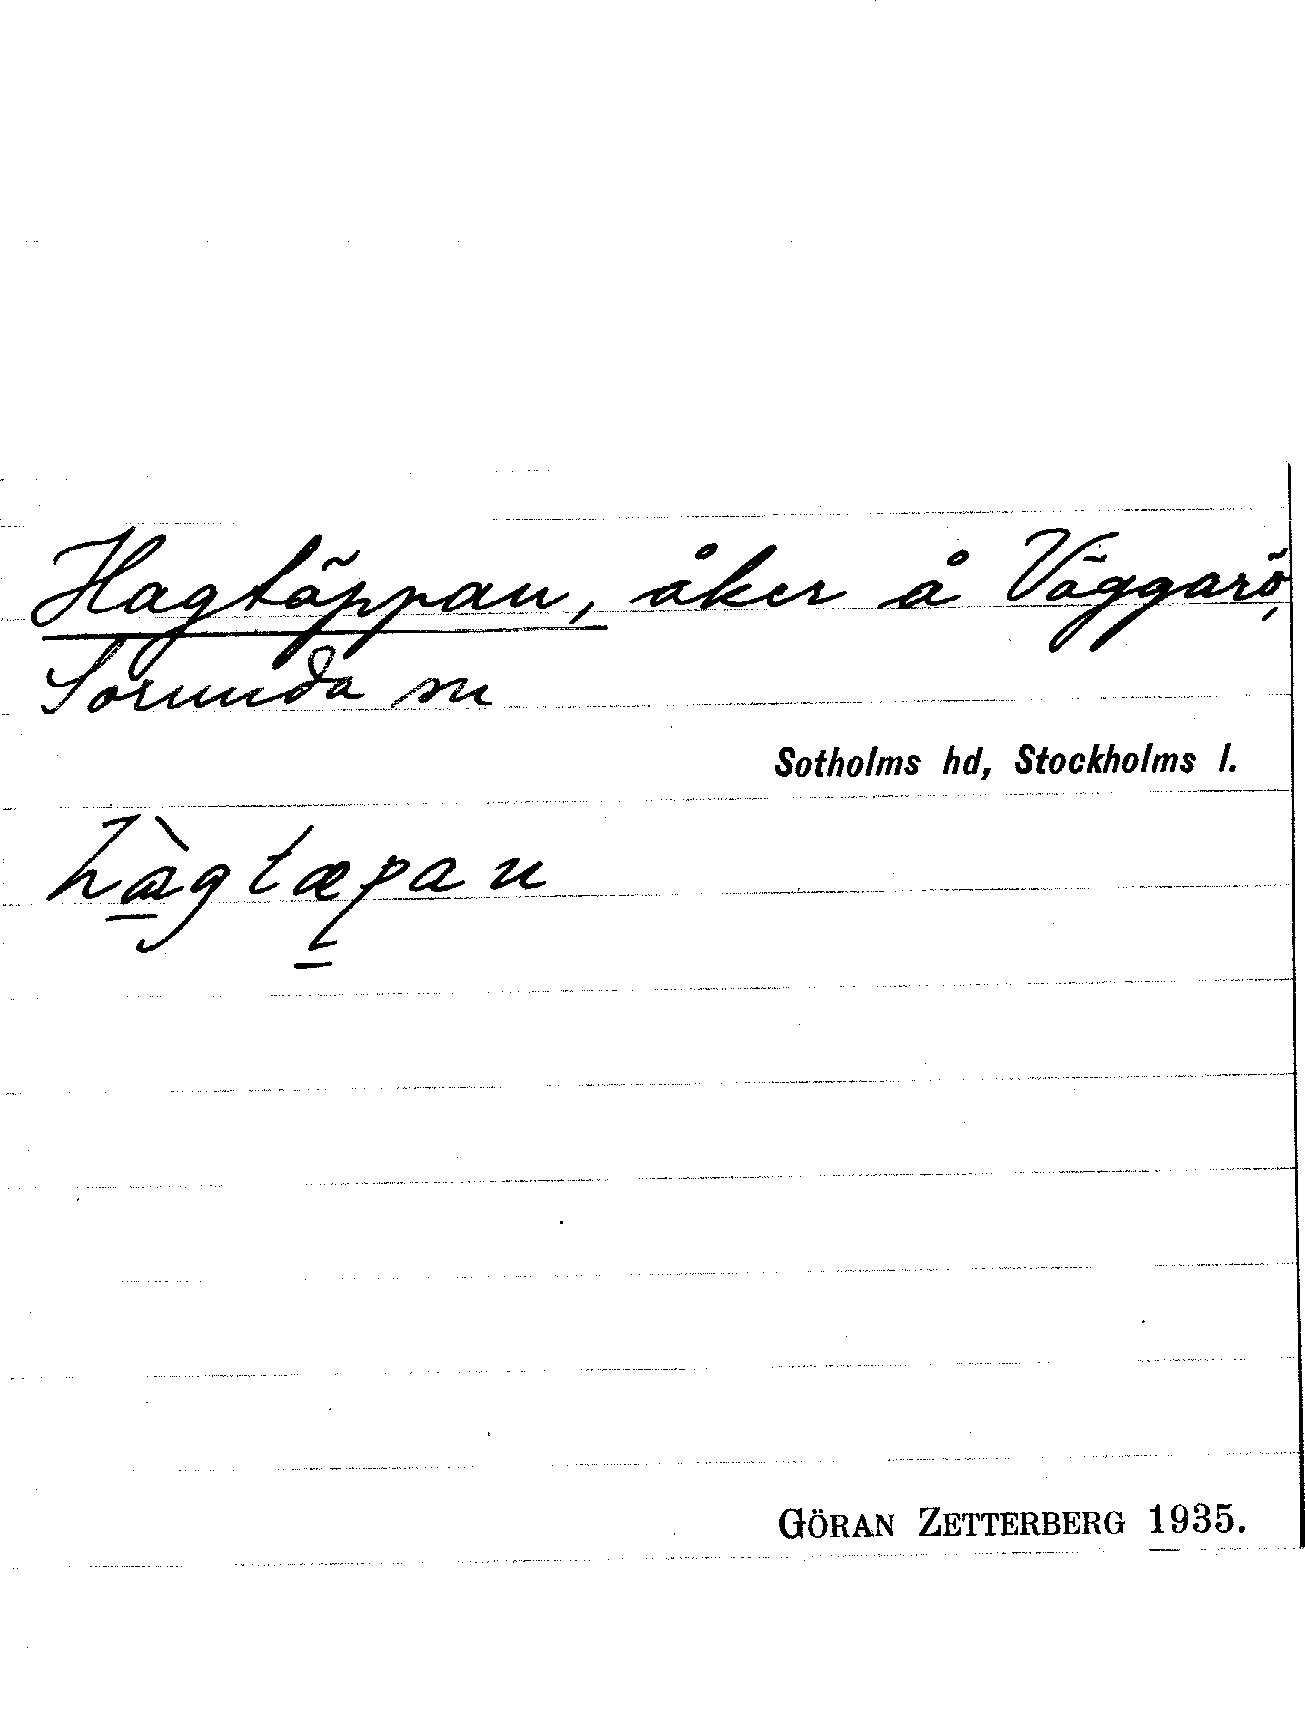 Hagtäppan, åker å Väggarö,
Sorunda sn
Sotholms hd, Stockholms l.
hàgtæpan
GÖRAN ZETTERBERG 1935.